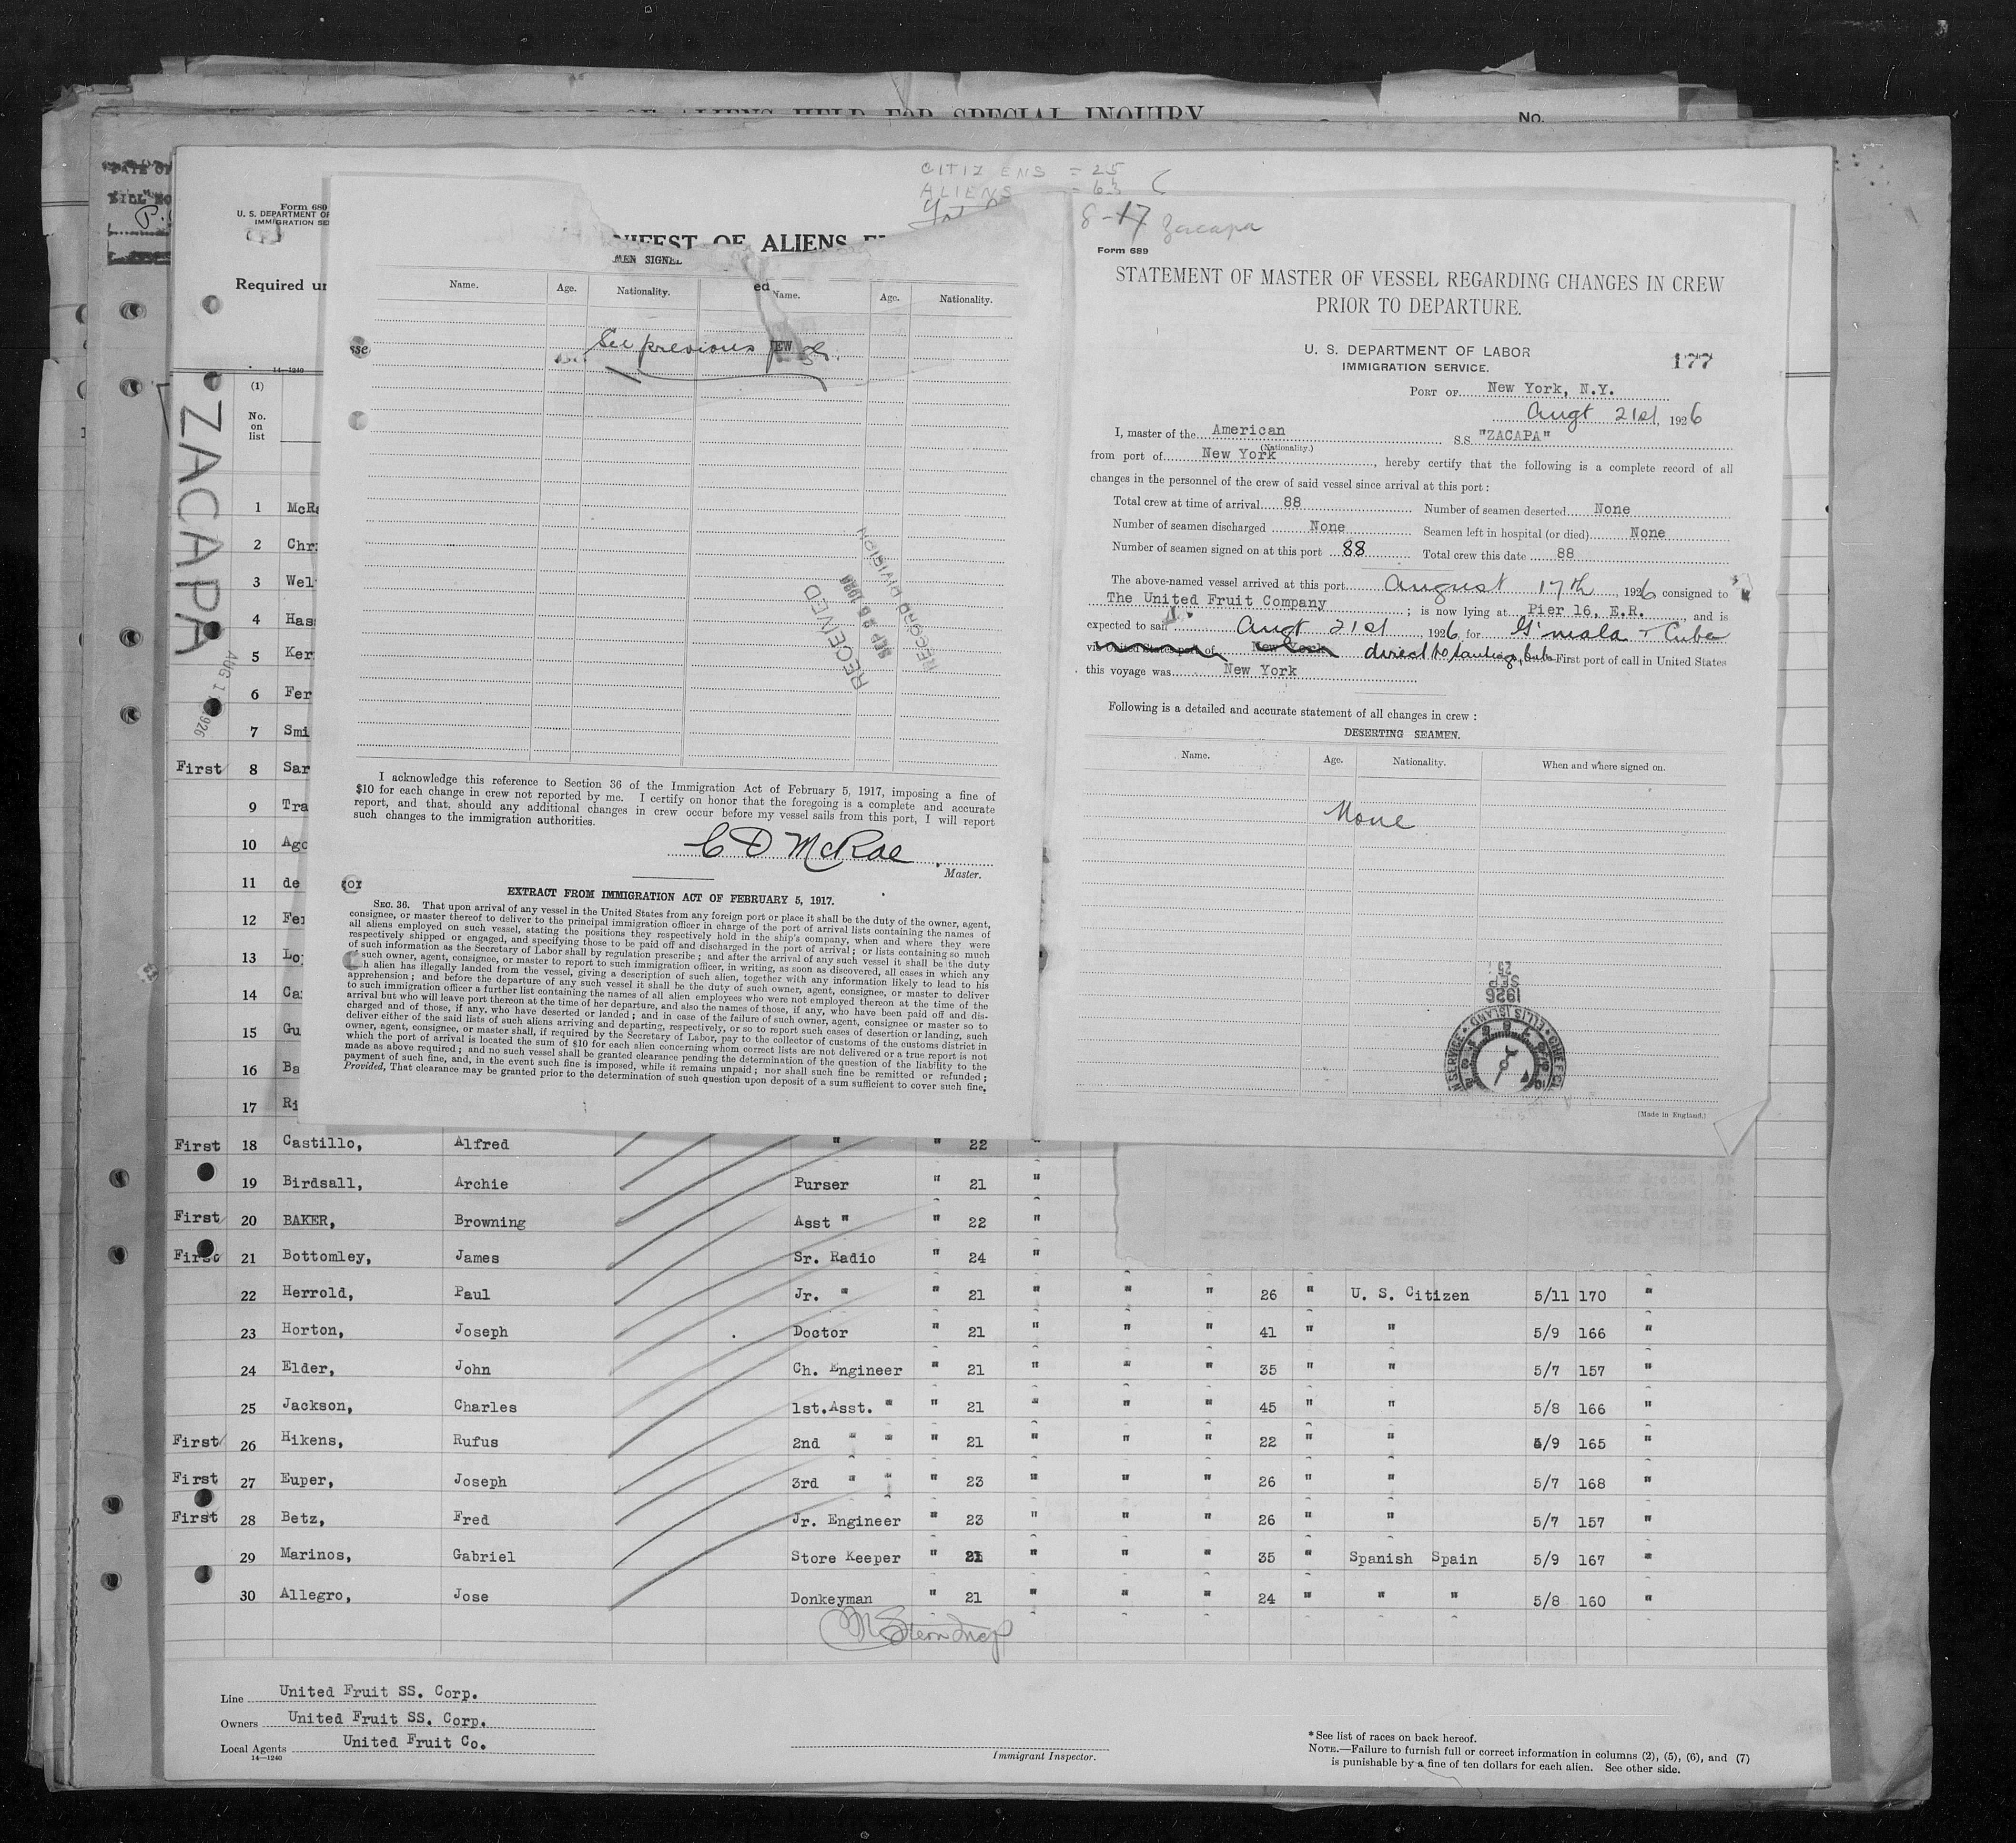 OF ALIENS HELD FOR SPECIAL INQUIRY
No.
CITIZENS = 25
ALIENS = 63
Form 680
U. S. DEPARTMENT OF
IMMIGRATION SE
Required un
14—1240
(1)
No.
on
list
ZACAPA
AUG 1 1926
OF ALIENS
MEN SIGNE
ed
Name. Age. Nationality. Name. Age. Nationality.
See previous
RECEIVED
SEP 1926
RECORD DIVISION
I acknowledge this reference to Section 36 of the Immigration Act of February 5, 1917, imposing a fine of
$10 for each change in crew not reported by me. I certify on honor that the foregoing is a complete and accurate
report, and that, should any additional changes in crew occur before my vessel sails from this port, I will report
such changes to the immigration authorities.
C D McRae
Master.
EXTRACT FROM IMMIGRATION ACT OF FEBRUARY 5, 1917.
SEC. 36. That upon arrival of any vessel in the United States from any foreign port or place it shall be the duty of the owner, agent,
consignee, or master thereof to deliver to the principal immigration officer in charge of the port of arrival lists containing the names of
all aliens employed on such vessel, stating the positions they respectively hold in the ship's company, when and where they were
respectively shipped or engaged, and specifying those to be paid off and discharged in the port of arrival; or lists containing so much
of such information as the Secretary of Labor shall by regulation prescribe; and after the arrival of any such vessel it shall be the duty
such owner, agent, consignee, or master to report to such immigration officer, in writing, as soon as discovered, all cases in which any
h alien has illegally landed from the vessel, giving a description of such alien, together with any information likely to lead to his
apprehension; and before the departure of any such vessel it shall be the duty of such owner, agent, consignee, or master to deliver
to such immigration officer a further list containing the names of all alien employees who were not employed thereon at the time of the
arrival but who will leave port thereon at the time of her departure, and also the names of those, if any, who have been paid off and dis-
charged and of those, if any, who have deserted or landed; and in case of the failure of such owner, agent, consignee or master so to
deliver either of the said lists of such aliens arriving and departing, respectively, or so to report such cases of desertion or landing, such
owner, agent, consignee, or master shall, if required by the Secretary of Labor, pay to the collector of customs of the customs district in
which the port of arrival is located the sum of $10 for each alien concerning whom correct lists are not delivered or a true report is not
made as above required; and no such vessel shall be granted clearance pending the determination of the question of the liability to the
payment of such fine, and, in the event such fine is imposed, while it remains unpaid; nor shall such fine be remitted or refunded;
Provided, That clearance may be granted prior to the determination of such question upon deposit of a sum sufficient to cover such fine.
8-17 Zacapa
Form 689
STATEMENT OF MASTER OF VESSEL REGARDING CHANGES IN CREW
PRIOR TO DEPARTURE.
U. S. DEPARTMENT OF LABOR
IMMIGRATION SERVICE.
177
PORT OF New York, N.Y.
Augt 21st, 1926
I, master of the American S.S. "ZACAPA"
(Nationality.)
from port of New York, hereby certify that the following is a complete record of all
changes in the personnel of the crew of said vessel since arrival at this port:
Total crew at time of arrival 88 Number of seamen deserted None
Number of seamen discharged None Seamen left in hospital (or died) None
Number of seamen signed on at this port 88 Total crew this date 88
The above-named vessel arrived at this port August 17th, 1926 consigned to
The United Fruit Company; is now lying at Pier 16, E.R. and is
expected to sail Augt 21st, 1926, for G'mala + Cuba
via United States port of New York direct to Santiago, Cuba First port of call in United States
this voyage was New York
Following is a detailed and accurate statement of all changes in crew:
DESERTING SEAMEN.
Name. Age. Nationality. When and where signed on.
None
SEP 25
1926
ELLIS ISLAND
(Made in England.)
1 McRa
2 Chr
3 Wel
4 Has
5 Ker
6 Fer
7 Smi
First 8 Sar
9 Tra
10 Ago
11 de
12 Fer
13 Lo
14 Ca
15 Gu
16 Ba
17 Ri
First 18 Castillo, Alfred " " 22 "
19 Birdsall, Archie Purser " 21 "
First 20 BAKER, Browning Asst " " 22 "
First 21 Bottomley, James Sr. Radio " 24 "
22 Herrold, Paul Jr. " " 21 " " " 26 " U. S. Citizen 5/11 170 "
23 Horton, Joseph Doctor " 21 " " " 41 " " 5/9 166 "
24 Elder, John Ch. Engineer " 21 " " " 35 " " 5/7 157 "
25 Jackson, Charles 1st.Asst. " " 21 " " " 45 " " 5/8 166 "
First 26 Hikens, Rufus 2nd " " " 21 " " " 22 " " 5/9 165 "
First 27 Euper, Joseph 3rd " " " 23 " " " 26 " " 5/7 168 "
First 28 Betz, Fred Jr. Engineer " 23 " " " 26 " " 5/7 157 "
29 Marinos, Gabriel Store Keeper " 21 " " " 35 " Spanish Spain 5/9 167 "
30 Allegro, Jose Donkeyman " 21 " " " 24 " " " 5/8 160 "
Line United Fruit SS. Corp.
Owners United Fruit SS. Corp.
Local Agents United Fruit Co.
14—1240
Immigrant Inspector.
* See list of races on back hereof.
NOTE.—Failure to furnish full or correct information in columns (2), (5), (6), and (7)
is punishable by a fine of ten dollars for each alien. See other side.